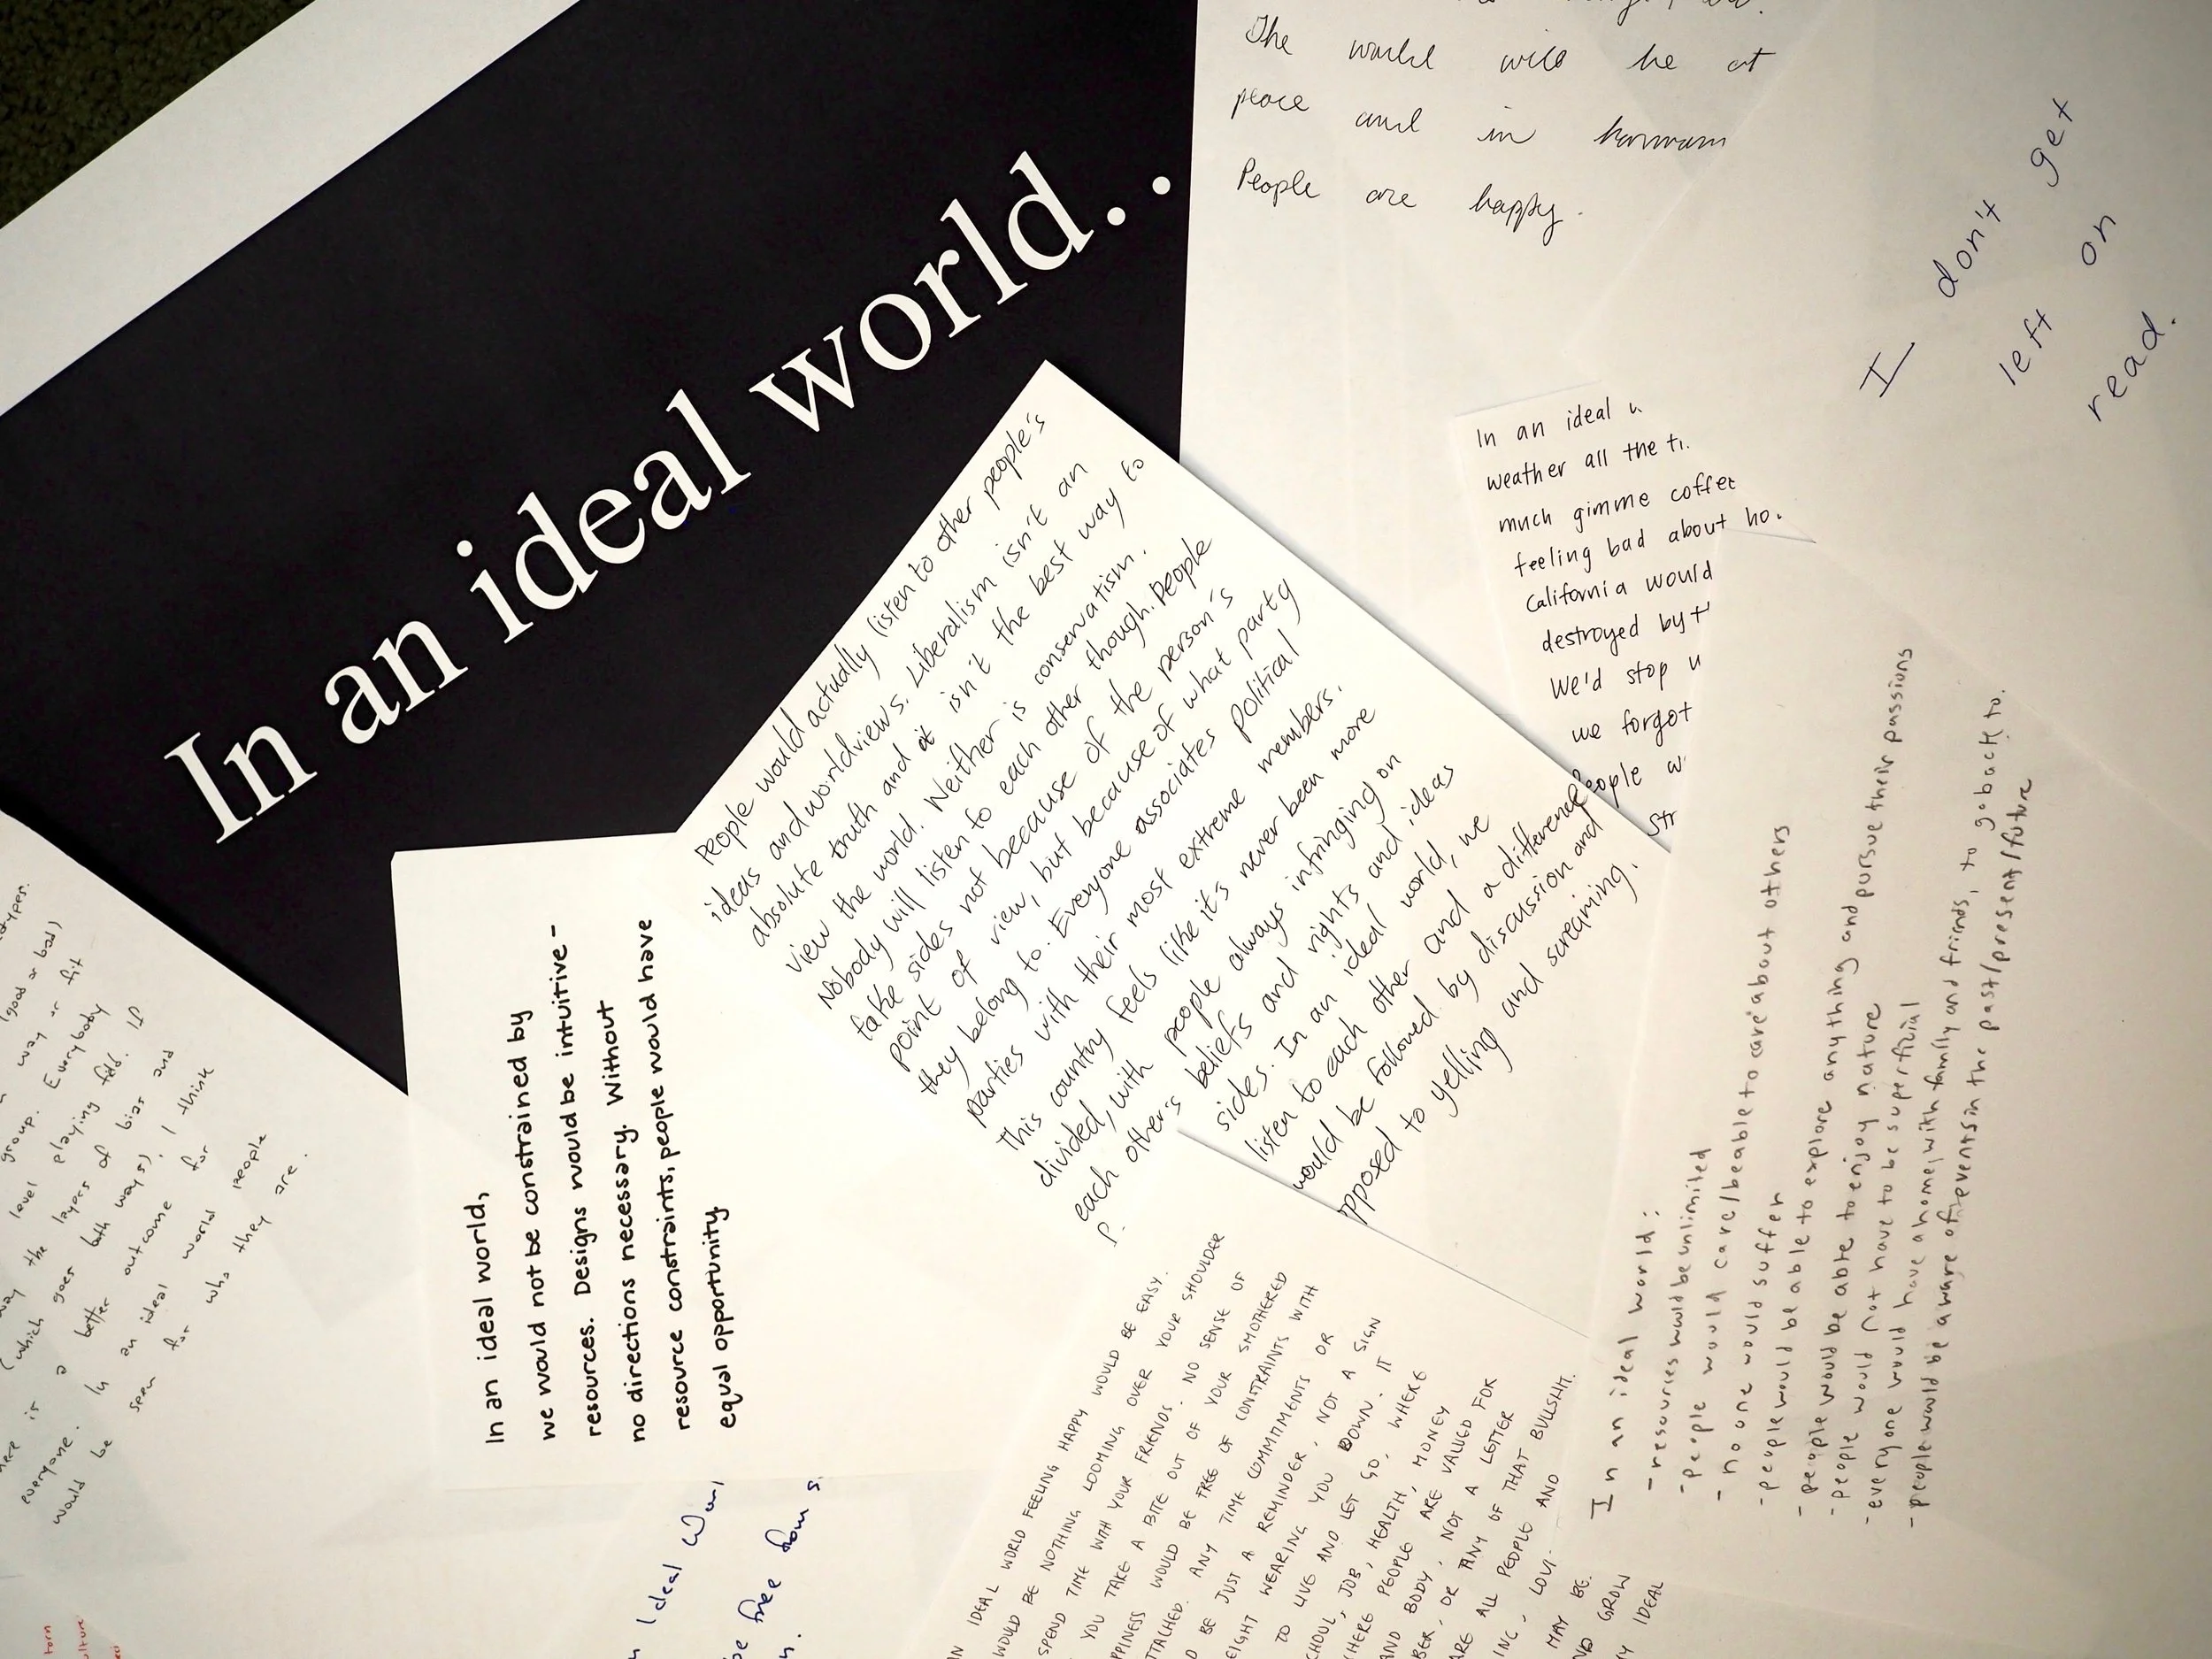 In an ideal world..
The world will be at
peace and in
People are happy.
I don't get
left on
read.
In an ideal
weather all the
much gimme coffee
feeling bad about
California would
destroyed by
We'd stop
we forgot
people
People would actually listen to other people's
ideas and worldviews. Liberalism isn't an
absolute truth and it isn't the best way to
view the world. Neither is conservatism.
Nobody will listen to each other though. People
take sides not because of the person's
point of view, but because of what party
they belong to. Everyone associates political
parties with their most extreme members.
This country feels like it's never been more
divided, with people always infringing on
each other's beliefs and rights and ideas
sides. In an ideal world, we
listen to each other and a difference
would be followed by discussion and
opposed to yelling and screaming.
In an ideal world,
we would not be constrained by
resources. Designs would be intuitive -
no directions necessary. Without
resource constraints, people would have
equal opportunity
(good or bad)
way or fit
group. Everybody
level playing feld. If
the layers of bias and
(which goes both ways), I think
is a better outcome for
everyone. In an ideal world people
would be seen for who they are.
Ideal
be free from
IDEAL WORLD FEELING HAPPY WOULD BE EASY.
WOULD BE NOTHING LOOMING OVER YOUR SHOULDER
SPEND TIME WITH YOUR FRIENDS. NO SENSE OF
YOU TAKE A BITE OUT OF YOUR SMOTHERED
WOULD BE FREE OF CONSTRAINTS WITH
ANY TIME COMMITMENTS OR
BE JUST A REMINDER, NOT A SIGN
WEARING YOU DOWN. IT
TO LIVE AND LET GO, WHERE
JOB, HEALTH, MONEY
PEOPLE ARE VALUED FOR
AND BODY, NOT A LETTER
OR ANY OF THAT BULLSHIT.
ARE ALL PEOPLE AND
MAY BE.
GROW
IDEAL
In an ideal world:
- resources would be unlimited
- people would care/be able to care about others
- no one would suffer
- people would be able to explore anything and pursue their passions
- people would be able to enjoy nature
- people would not have to be superficial
- everyone would have a home, with family and friends, to go back to.
- people would be aware of events in the past/present/future
torn